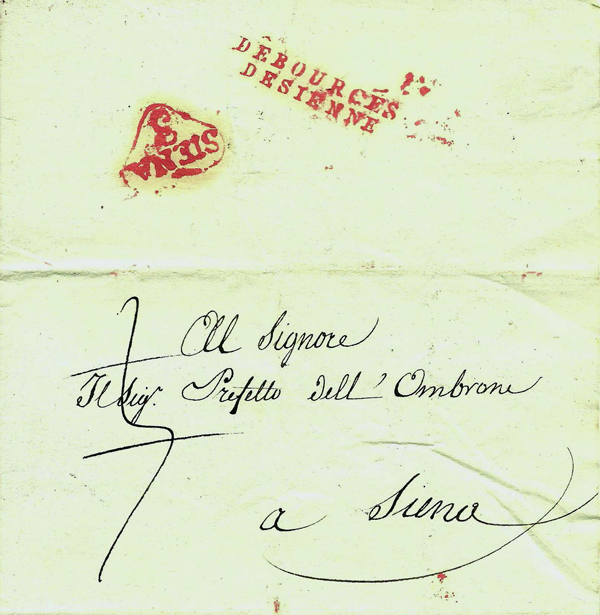 DÉBOURCÉS
DESIENNE
SIENA
Al Signore
Il Sig.r Prefetto dell' Ombrone
a Siena